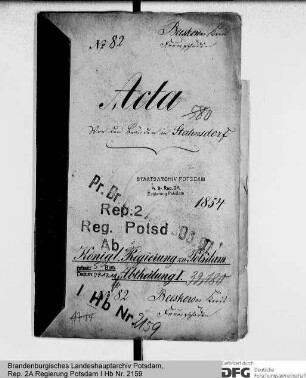 No 82
Beeskower Kreis
Feuerschäden
Acta
980
Von den Bränden in Stahnsdorf
STAATSARCHIV POTSDAM
Pr. Br. Rep. 2A
Regierung Potsdam
1854
Pr. Br
Rep. 2
Reg. Potsd
Ab
Königl. Regierung zu Potsdam
Abtheilung I.
I Hb Nr. 2159
No 82
Beeskower Kreis
Feuerschäden
Brandenburgisches Landeshauptarchiv Potsdam,
Rep. 2A Regierung Potsdam I Hb Nr. 2159
Gefördert durch
DFG
Deutsche
Forschungsgemeinschaft